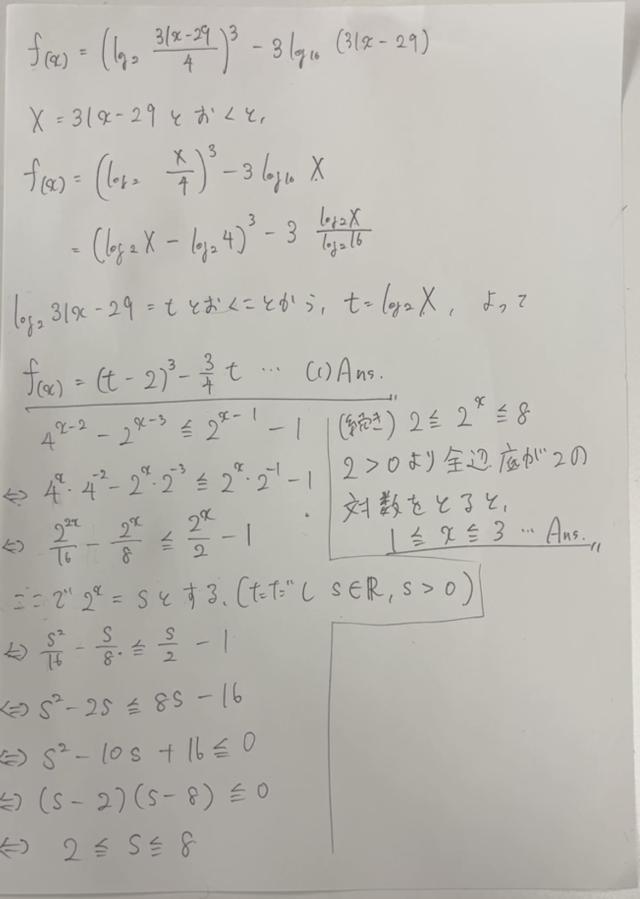 f(x) = (log₂ (31x-29)/4)³ - 3log₁₆ (31x-29)
X = 31x-29 とおくと,
f(x) = (log₂ X/4)³ - 3log₁₆ X
= (log₂X - log₂4)³ - 3 log₂X/log₂16
log₂31x-29 = t とおくことから, t = log₂X, よって
f(x) = (t-2)³ - 3/4 t … (1) Ans.
4^(x-2) - 2^(x-3) ≦ 2^(x-1) - 1
⇔ 4^x・4^(-2) - 2^x・2^(-3) ≦ 2^x・2^(-1) - 1
⇔ 2^(2x)/16 - 2^x/8 ≦ 2^x/2 - 1
ここで 2^x = s とする. (ただし s∈ℝ, s>0)
⇔ s²/16 - s/8 ≦ s/2 - 1
⇔ s² - 2s ≦ 8s - 16
⇔ s² - 10s + 16 ≦ 0
⇔ (s-2)(s-8) ≦ 0
⇔ 2 ≦ s ≦ 8
(続き) 2 ≦ 2^x ≦ 8
2>0より全辺底が2の
対数をとると,
1 ≦ x ≦ 3 … Ans.